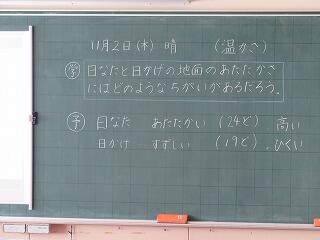 11月2日(木) 晴 (温かさ)
学 日なたと日かげの地面のあたたかさ
にはどのようなちがいがあるだろう。
予 日なた あたたかい (24ど) 高い
日かげ すずしい (19ど) ひくい